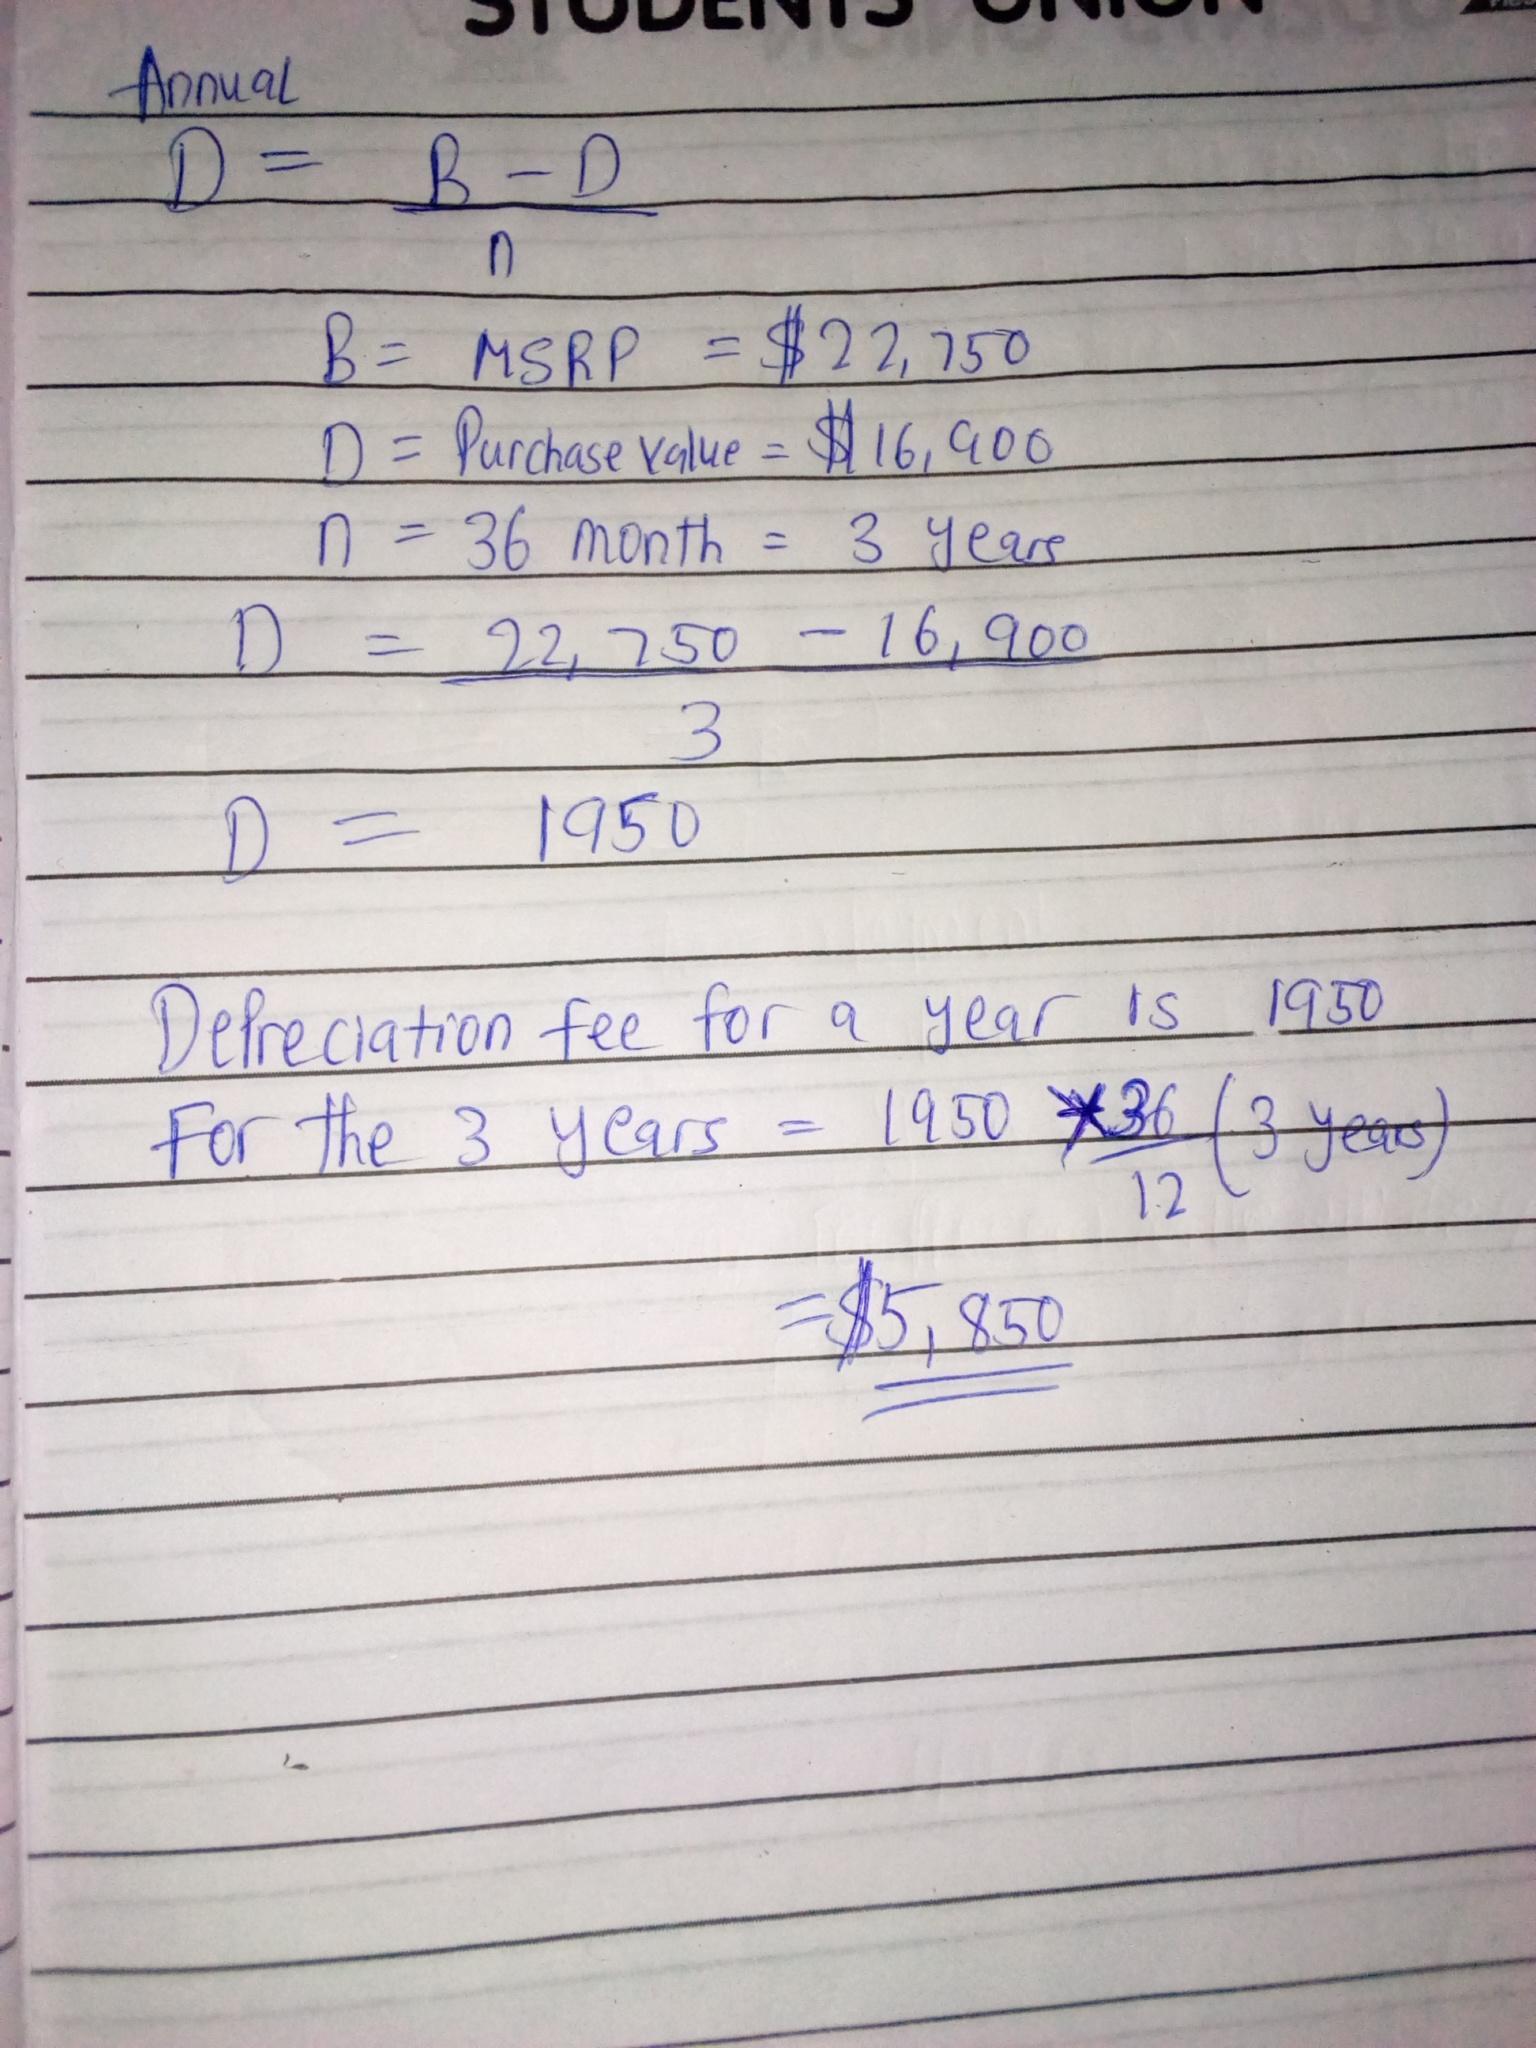 STUDENTS' UNION
Annual
D = B - D
n
B = MSRP = $22,750
D = Purchase value = $16,900
n = 36 month = 3 years
D = 22,750 - 16,900
3
D = 1950
Depreciation fee for a year is 1950
For the 3 years = 1950 * 36 (3 years)
12
= $5,850